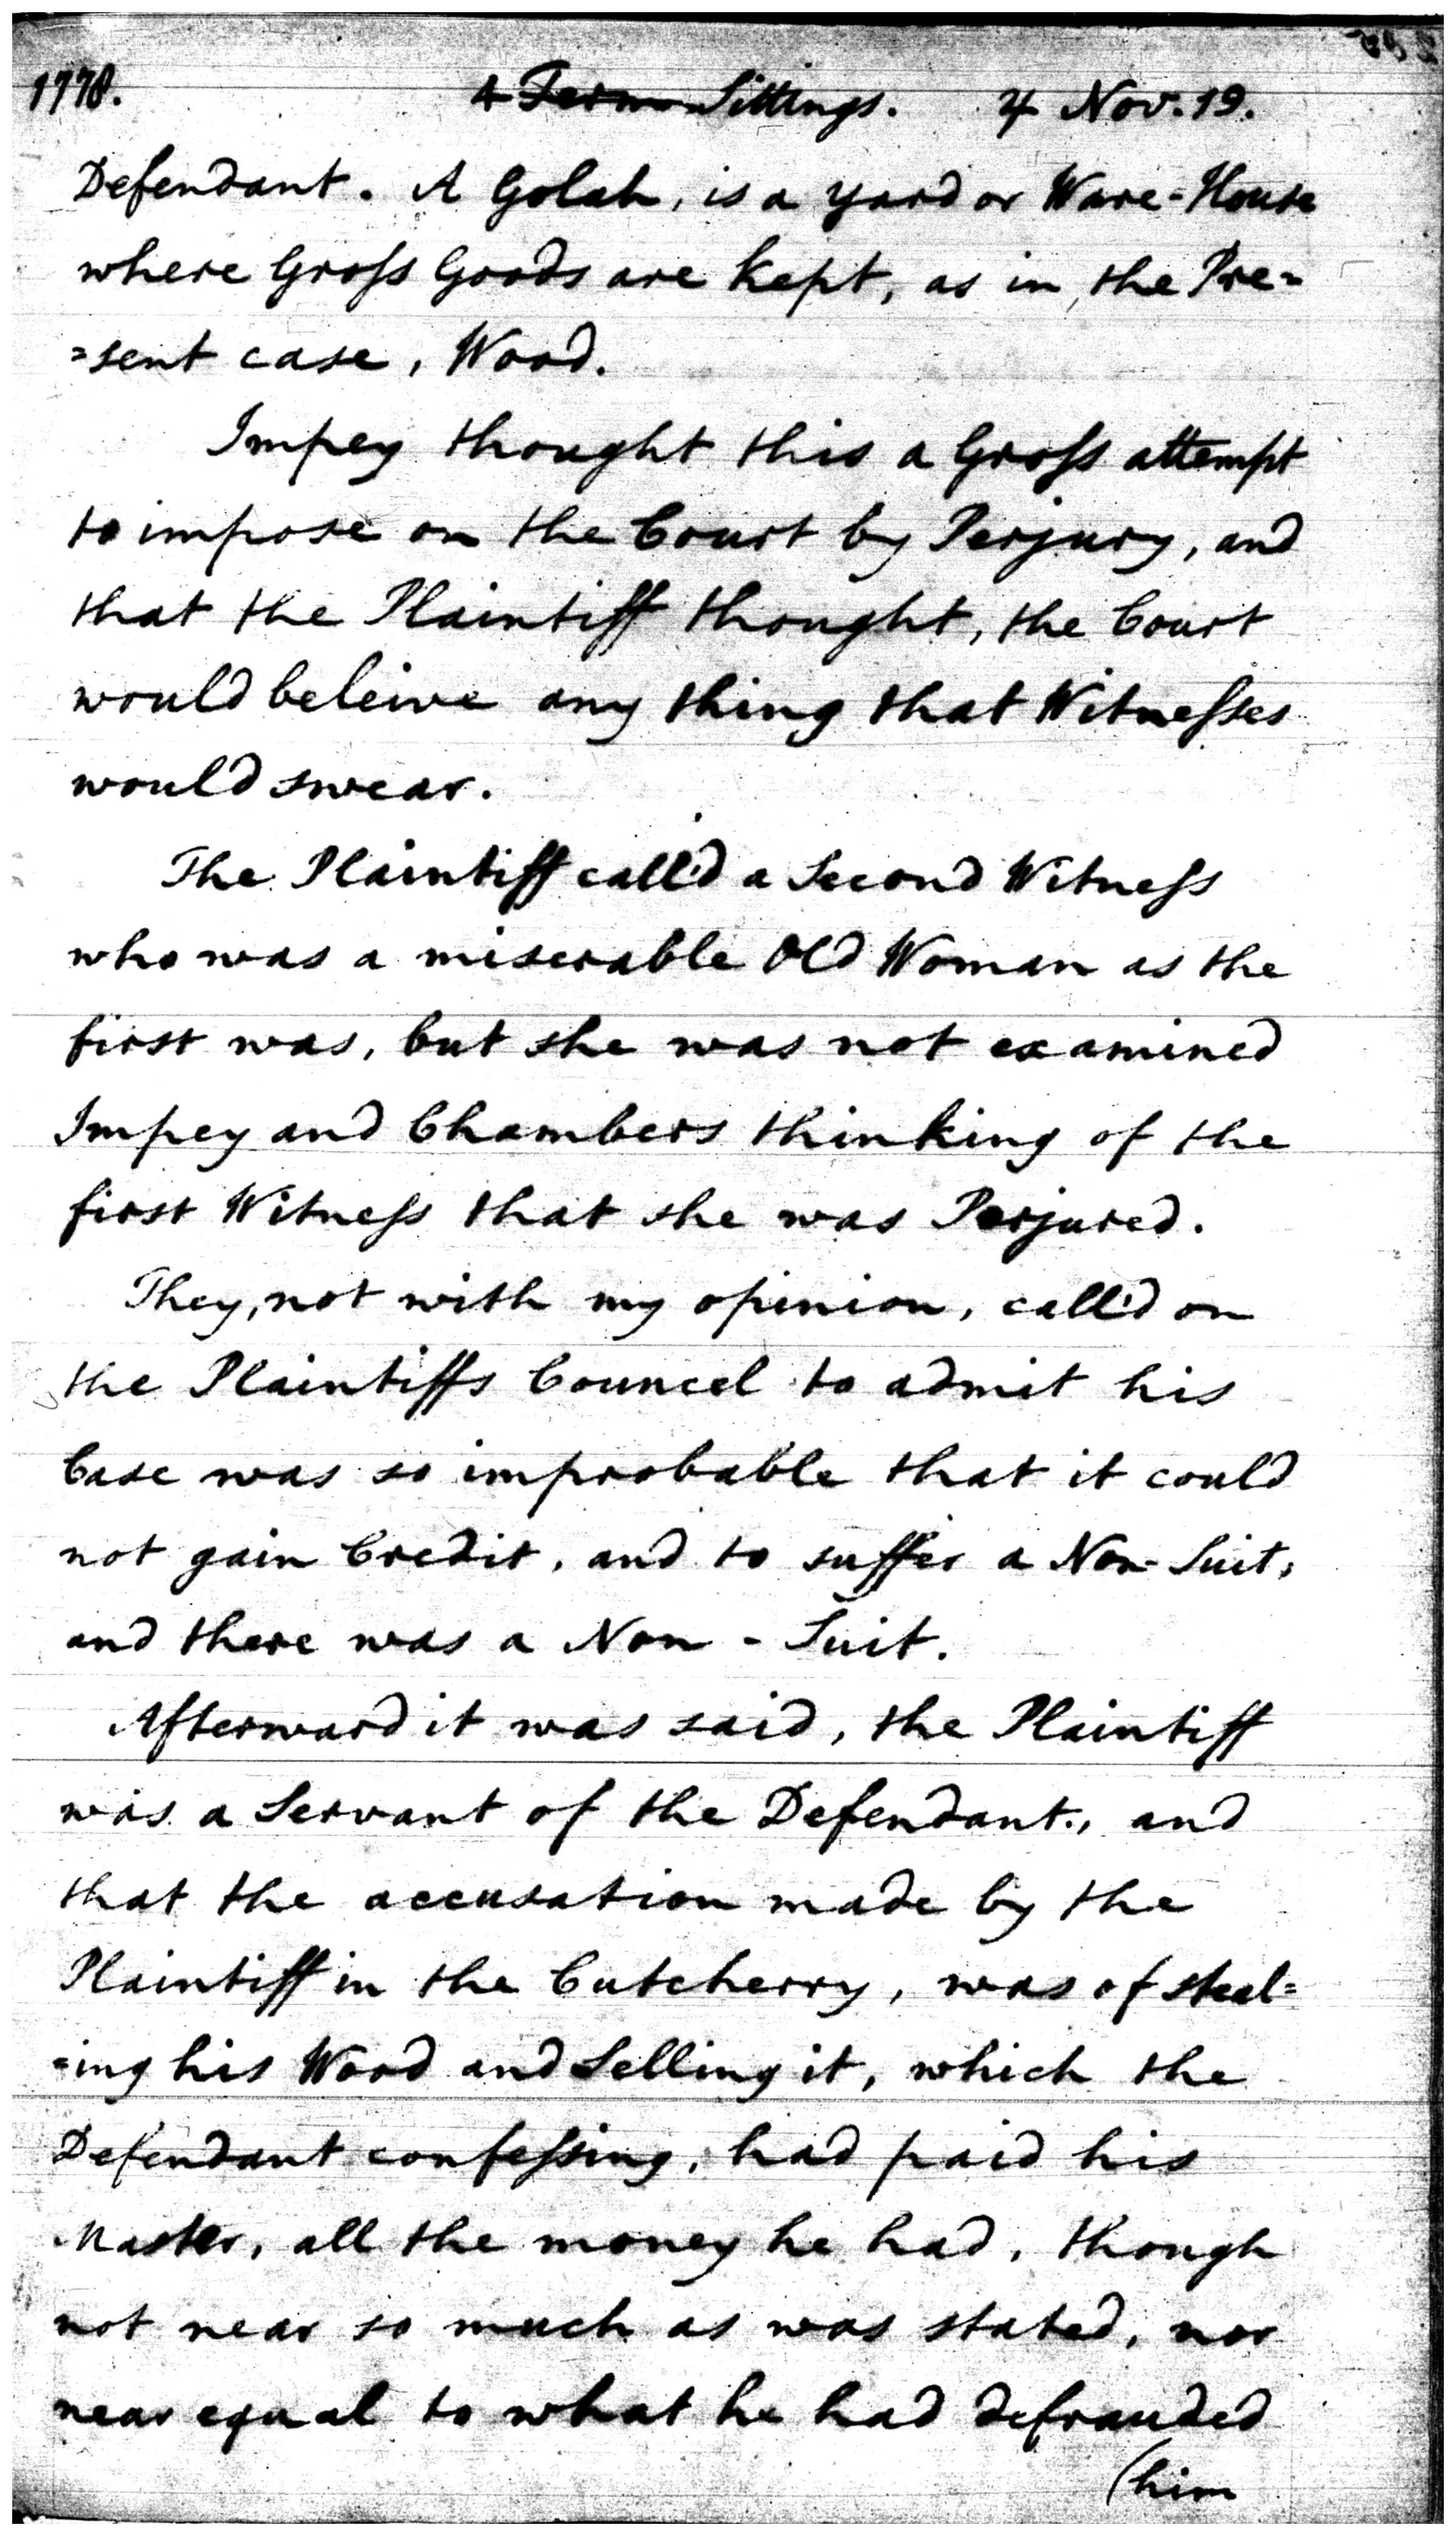 1778. 4 Term Sittings. 4 Nov. 19.
Defendant. A Golah, is a yard or Ware-House
where Gross Goods are kept, as in the Pre=
=sent case, Wood.
Impey thought this a Gross attempt
to impose on the Court by Perjury, and
that the Plaintiff thought, the Court
would beleive any thing that Witnesses
would swear.
The Plaintiff call'd a Second Witness
who was a miserable Old Woman as the
first was, but she was not examined
Impey and Chambers thinking of the
first Witness that she was Perjured.
They, not with my opinion, call'd on
the Plaintiffs Councel to admit his
Case was so improbable that it could
not gain Credit, and to suffer a Non-Suit,
and there was a Non-Suit.
Afterward it was said, the Plaintiff
was a Servant of the Defendant., and
that the accusation made by the
Plaintiff in the Cutcherry, was of steal=
=ing his Wood and Selling it, which the
Defendant confessing, had paid his
Master, all the money he had, though
not near so much as was stated, nor
near equal to what he had defrauded
(him